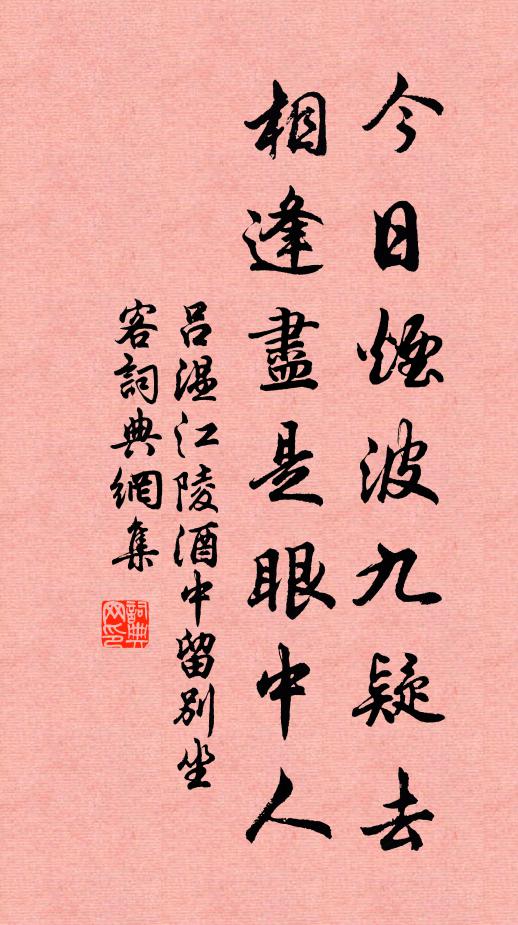 今日煙波九疑去
相逢盡是眼中人
呂溫江陵酒中留別坐
客詞典網集
詞典
网印